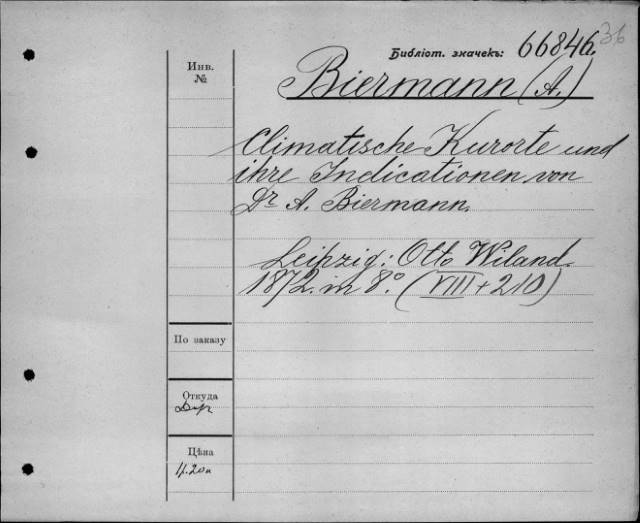 36
Библіот. значекъ: 66846.
Инв.
№
Biermann (A.)
Climatische Kurorte und
ihre Indicationen von
Dr A. Biermann.
Leipzig: Otto Wiland.
1872. in 8°. (VIII + 210)
По заказу
Откуда
Цѣна